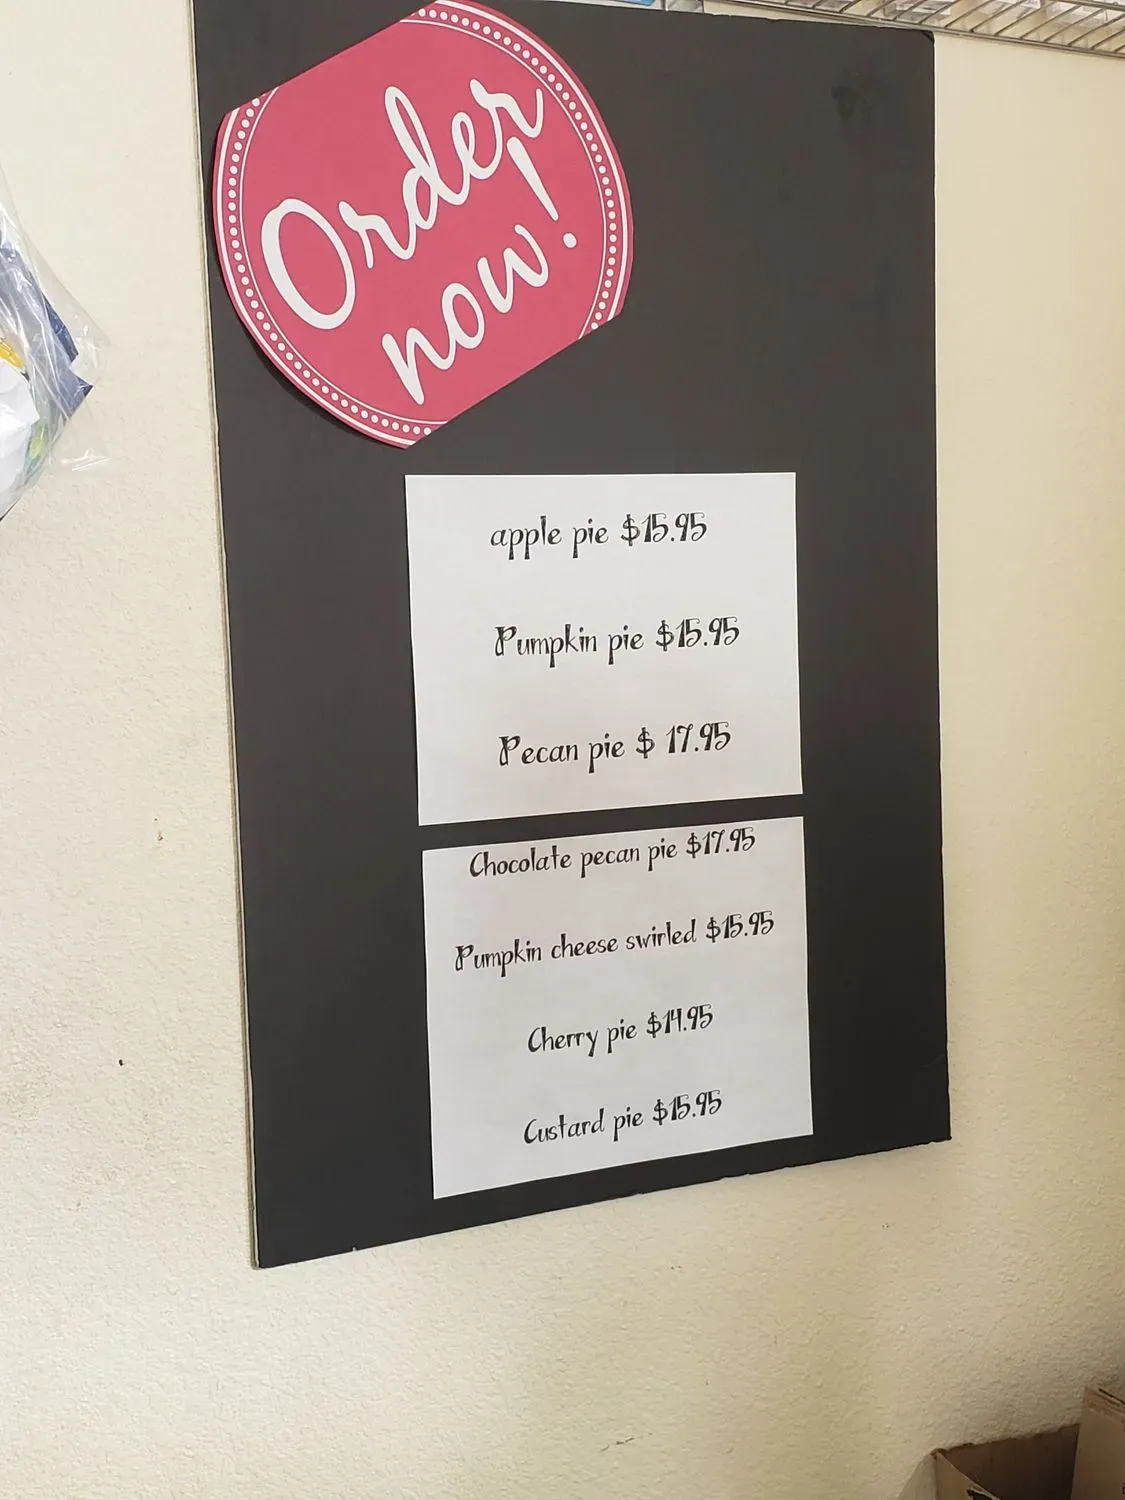 Order
now!
apple pie $15.95
Pumpkin pie $15.95
Pecan pie $ 17.95
Chocolate pecan pie $17.95
Pumpkin cheese swirled $15.95
Cherry pie $14.95
Custard pie $15.95